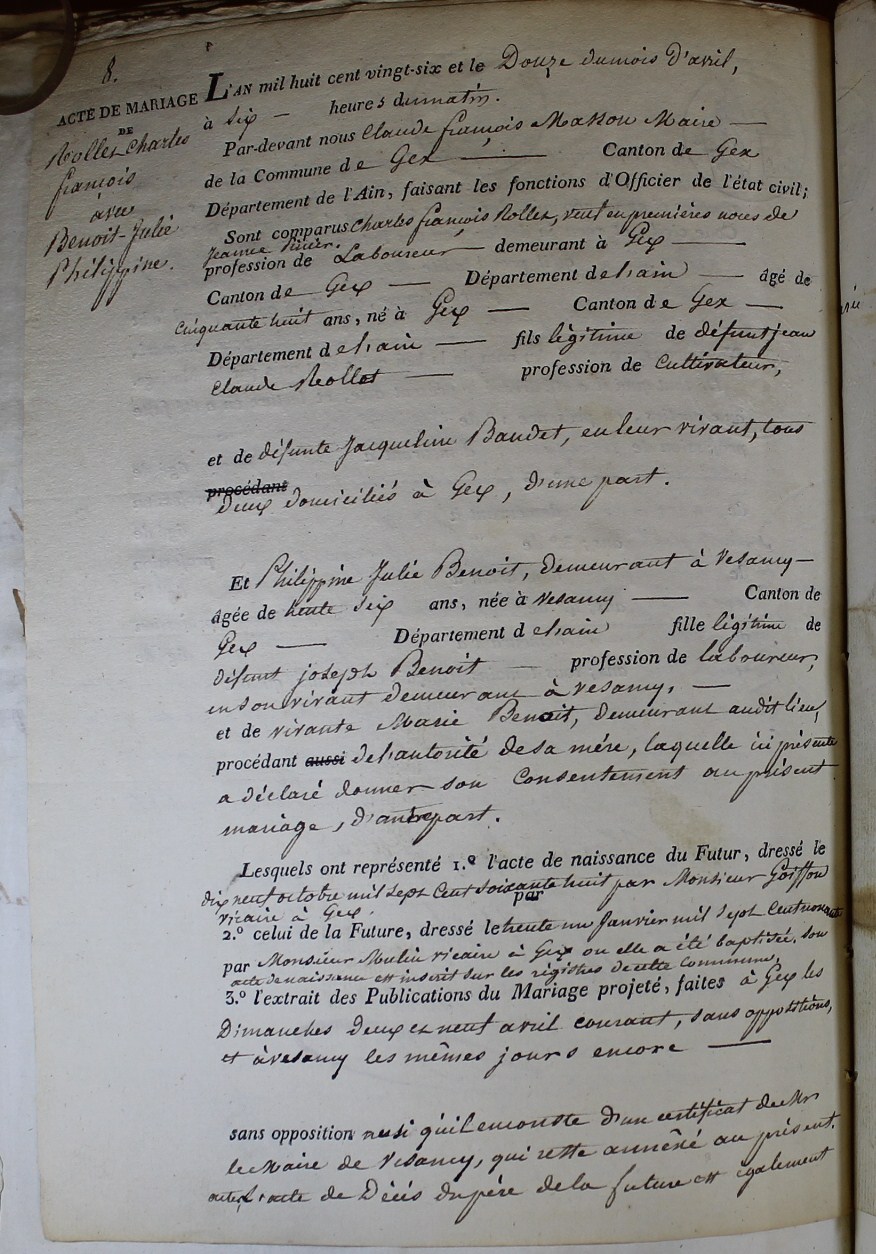 8.
ACTE DE MARIAGE
DE
Rollet Charles
françois
avec
Benoit-Julie
Philippine.
L'AN mil huit cent vingt-six et le Douze dumois D'avril,
à six — heures dumatin.
Par-devant nous Claude françois Masson Maire —
de la Commune de Gex — Canton de Gex
Département de l'Ain, faisant les fonctions d'Officier de l'état civil;
Sont comparus Charles françois Rollet, veuf en premières noces de
Jeanne
profession de Laboureur — demeurant à Gex —
Canton de Gex — Département de l'ain — âgé de
Cinquante huit ans, né à Gex — Canton de Gex —
Département de l'ain — fils légitime de défunt jean
Claude Rollet — profession de Cultivateur,
et de défunte Jacqueline Baudet, en leur vivant, tous
procédant
deux domiciliés à Gex, d'une part.
Et Philippine Julie Benoit, demeurant à Vesancy —
âgée de trente six ans, née à Vesancy — Canton de
Gex — Département de l'ain fille légitime de
défunt joseph Benoit — profession de laboureur,
en son vivant demeurant à Vesancy, —
et de vivante Marie Benoit, demeurant audit lieu,
procédant aussi de l'autorité de sa mère, laquelle ici présente
a déclaré donner son Consentement au présent
mariage, d'autre part.
Lesquels ont représenté 1.º l'acte de naissance du Futur, dressé le
dix neuf octobre mil sept Cent soixante huit par Monsieur Goiffon
par
vicaire à Gex.
2.º celui de la Future, dressé le trente un Janvier mil sept Cent nonante
par Monsieur Moulin vicaire à Gex ou elle a été baptisée, son
acte de naissance est inscrit sur les régistres de cette Commune,
3.º l'extrait des Publications du Mariage projeté, faites à Gex les
Dimanches deux et neuf avril courant, sans oppositions,
et à Vesancy les mêmes jours encore —
sans opposition ainsi qu'il en conste d'un certificat de Mr
le Maire de Vesancy, qui reste annéxé au présent
acte, L'acte de Décès du père de la future est également